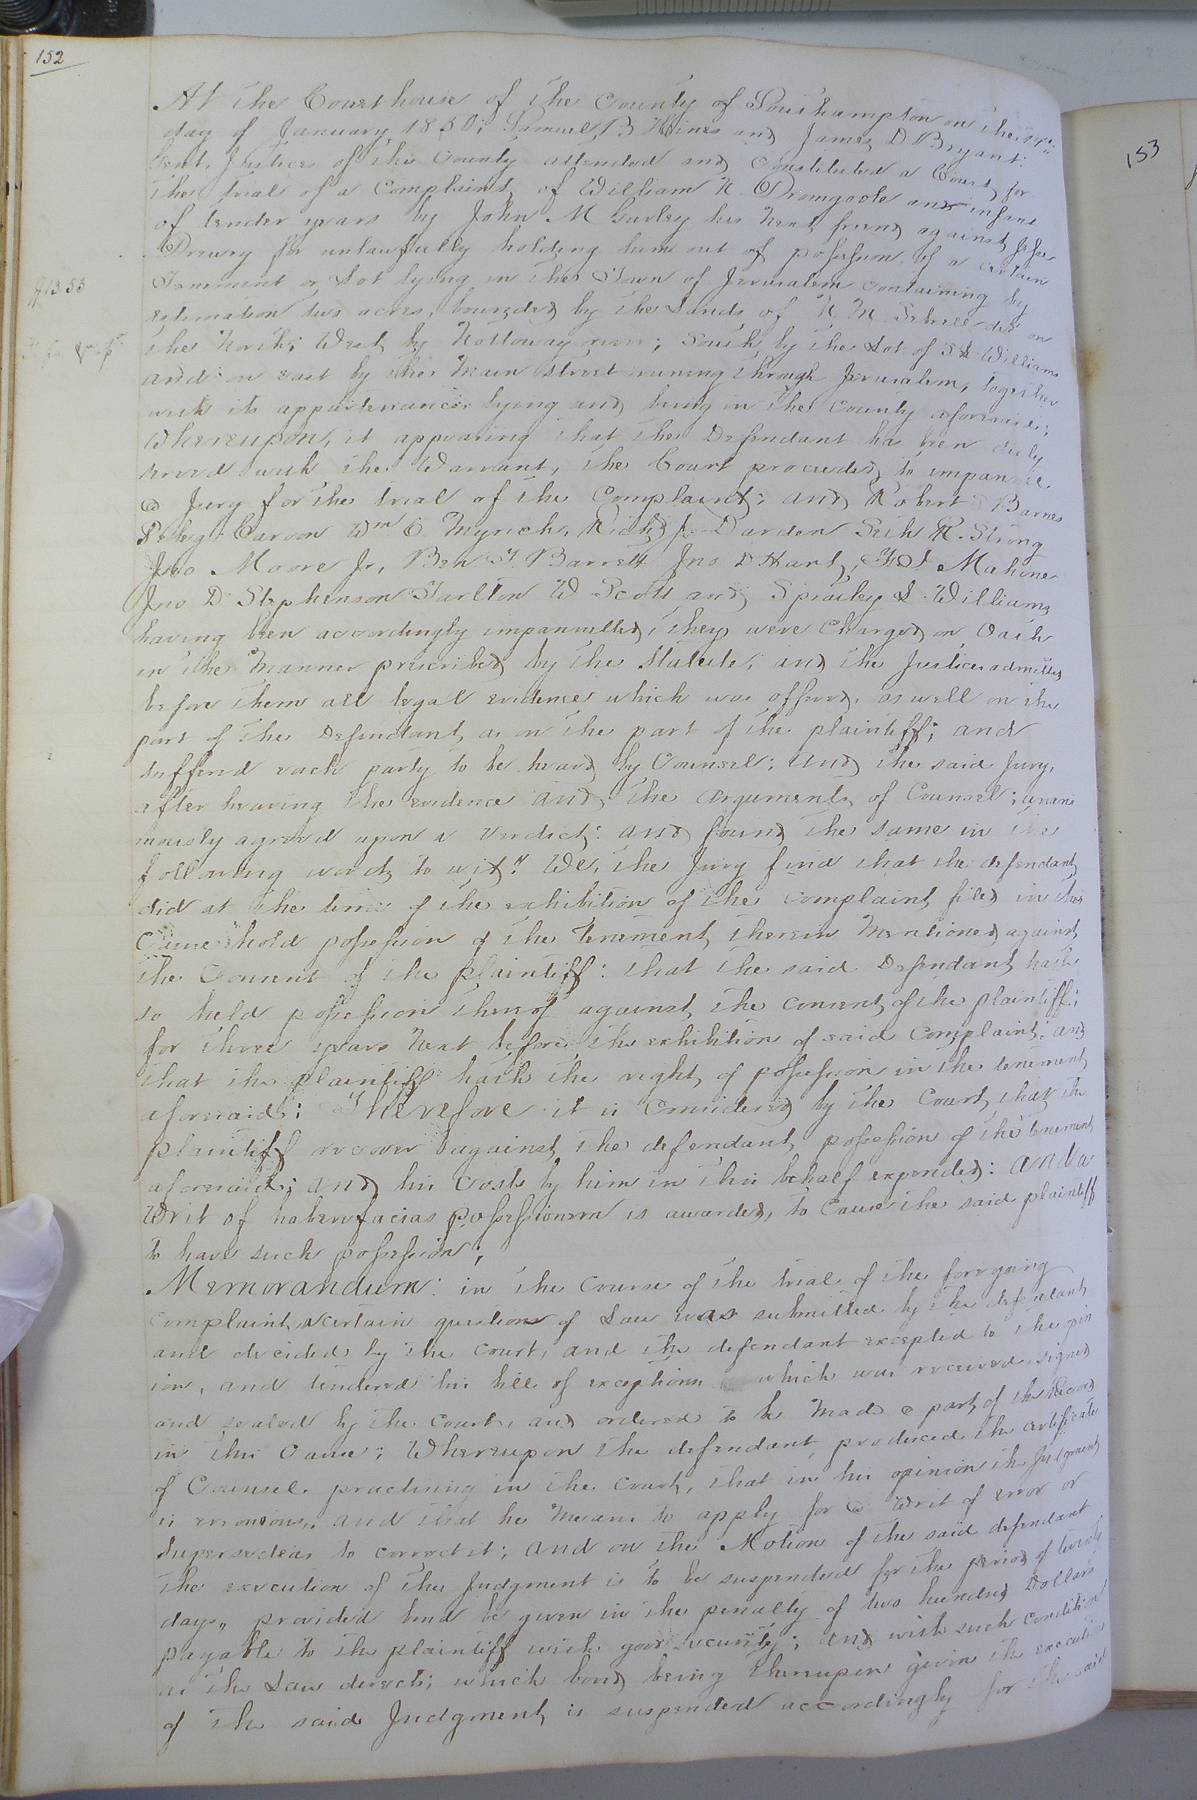 152
At the Courthouse of the County of Southampton on the
day of January 1850; Samuel B Hines and James D Bryant:
Gent. Justices of this County attended and Constituted a Court, for
the trial of a Complaint, of William N. Dromgoole an infant
of tender years by John M Gurley his Next friend against
Drewry for unlawfully holding him out of possession of a certain
Tenement or Lot lying in the Town of Jerusalem containing by
estimation two acres, bounded by the Lands of N M Sebrell on
the North; West by Nottoway river; South by the Lot of S L Williams
and on east by the Main street runing through Jerusalem, together
with its appurtenances lying and being in the County aforesaid;
Whereupon, it appearing that the Defendant has been duly
served with the Warrant, the Court proceeded to impannel
a Jury for the trial of the Complaint; and Robert Barnes
Wm Myrick, Darden Seth K. Strong
Jno Moore Jr, Ben T. Barrett Jno D Hart, Mahone
Jno D Stephenson Tarlton W Scott and Spratley L Williams
having been accordingly impannelled, they were Charged on Oath
in the Manner prescribed by the Statute; and the Justices admitted
before them all legal evidence which was offered, as well on the
part of the Defendant, as on the part of the plaintiff; and
suffered each party to be heard by Counsel; and the said Jury,
after hearing the evidence and the arguments of Counsel; unani
mously agreed upon a Verdict: and found the same in the
following words to wit: "We, the Jury find that the defendant
did at the time of the exhibition of the complaint filed in this
Cause hold possession of the tenement therein Mentioned against
the Consent of the plaintiff: that the said Defendant hath
so held possession thereof against the consent of the plaintiff;
for three years Next before the exhibition of said Complaint; and
that the plaintiff hath the right of possession in the tenement
aforesaid: Therefore it is Considered by the Court, that the
plaintiff recover against the defendant possession of the tenement
aforesaid; and his Costs by him in this behalf expended: and a
Writ of habere facias possessionem is awarded, to Cause the said plaintiff
to have such possession;
Memorandum: in the Course of the trial of the foregoing
Complaint certain questions of Law was submitted by the defendant
and decided by the Court, and the defendant excepted to the opin
ion, and tendered his bill of exceptions which was received signed
and sealed by the Court, and ordered to be Made a part of the Record
in this Cause; Whereupon the defendant, produced the certificate
of Counsel practising in the Court, that in his opinion the Judgment
is erroneous, and that he Means to apply for a Writ of error or
Supersedeas to correct it; and on the Motion of the said defendant
the execution of the Judgment is to be suspended for the period of twenty
days, provided bond be given in the penalty of two hundred Dollars
payable to the plaintiff with good security; and with such condition
as the Law directs; which bond being thereupon given the execution
of the said Judgment, is suspended accordingly for the said
153